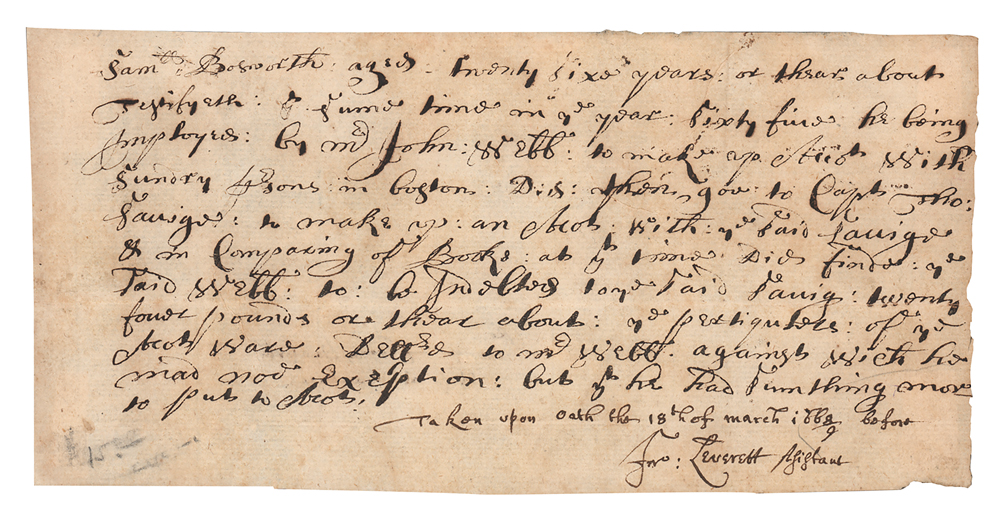 Sam^ll Bosworth: aged: twenty sixe years: or thear about
Testifyeth: yt sume time in ye year: sixty five he being
Imployed: by mr John: Webb: to make up Acot with
sundry psons: in boston: Did: then goe to Capt: Tho:
Savige: to make up: an Acot: with: ye said Savige
& in Comparing of Booke: at yt time Did finde: ye
said Webb: to: be Indebted to ye said Savig: twenty
fower pounds or thear about: ye pertiqulers: of ye
Acot ware: to mr Webb: against wich he
mad noe Exeption: but yt he had sumthing mor
to put to Acot.
Taken upon oath the 18th of march 1668/9 before
Jno: Leverett Asistant